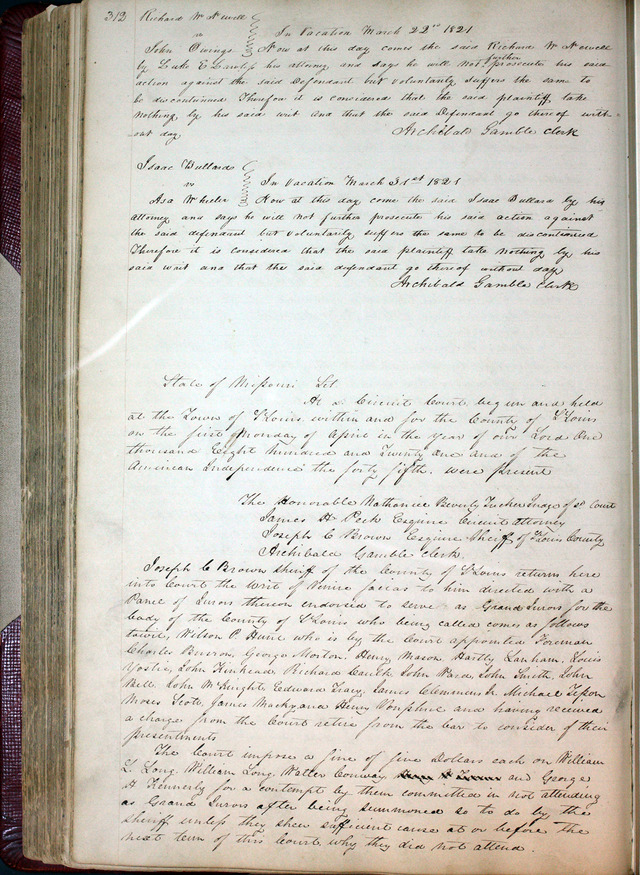 312 Richard W Newell
vs In Vacation March 22nd 1821
John Owings Now at this day comes the said Richard W Newell
by Luke E Lawless his attorney and says he will not further prosecute his said
action against the said Defendant but voluntarily suffers the same to
be discontinued Therefore it is considered that the said plaintiff take
nothing by his said writ and that the said Defendant go thereof with-
out day
Archibald Gamble clerk
Isaac Bullard
vs In Vacation March 31st 1821
Asa Wheeler Now at this day come the said Isaac Bullard by his
attorney and says he will not further prosecute his said action against
the said defendant but voluntarily suffers the same to be discontinued
Therefore it is considered that the said plaintiff take nothing by his
said writ and that the said defendant go thereof without day
Archibald Gamble Clerk
State of Missouri Sct
At a Circuit Court begun and held
at the Town of St Louis within and for the County of St Louis
on the first Monday of April in the Year of our Lord One
thousand Eight hundred and Twenty One and of the
American Independence the forty fifth. were present
The Honorable Nathaniel Beverly Tucker Judge of sd Court
James H Peck Esquire Circuit attorney
Joseph C Brown Esquire Sheriff of St Louis County
Archibald Gamble Clerk
Joseph C Brown Sheriff of the County of St Louis returns here
into Court the Writ of Venire facias to him directed with a
Panel of Jurors thereon endorsed to serve as Grand Jurors for the
body of the County of St Louis who being called comes as follows
towit, Wilson P. Hunt who is by the Court appointed Foreman
Charles Burron, George Morton, Henry Mason, Hartly Lanham, Louis
Yostie, John Kinkead, Richard Cauth, John Ward, John Smith, John
Bell, John McKnight, Edward Tracy, James Clemmens Jr, Michael Tipson
Moses Scott, James Mackay and Henry Vonphul and having received
a charge from the Court retire from the bar to consider of their
presentments
The Court impose a fine of five Dollars each on William
L. Long, William Long, Walter Conway and George
H Kennerly for a contempt by them committed in not attending
as Grand Jurors after being summoned so to do by the
sheriff unless they shew sufficient cause at or before the
next term of this Court why they did not attend.